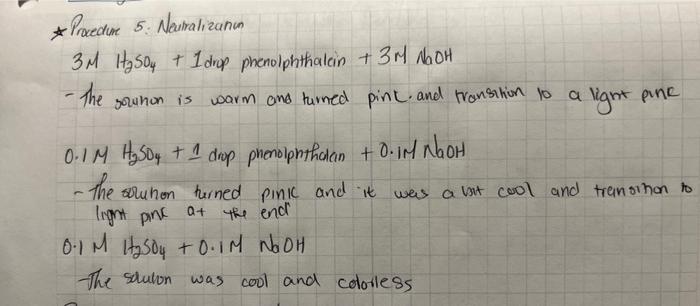 ★ Procedure 5: Neutralization
3M H₂SO₄ + 1 drop phenolphthalein + 3M NaOH
- The solution is warm and turned pink and transition to a light pink
0.1 M H₂SO₄ + 1 drop phenolphthalein + 0.1M NaOH
- The solution turned pink and it was a bit cool and transition to
light pink at the end
0.1 M H₂SO₄ + 0.1M NaOH
- The solution was cool and colorless